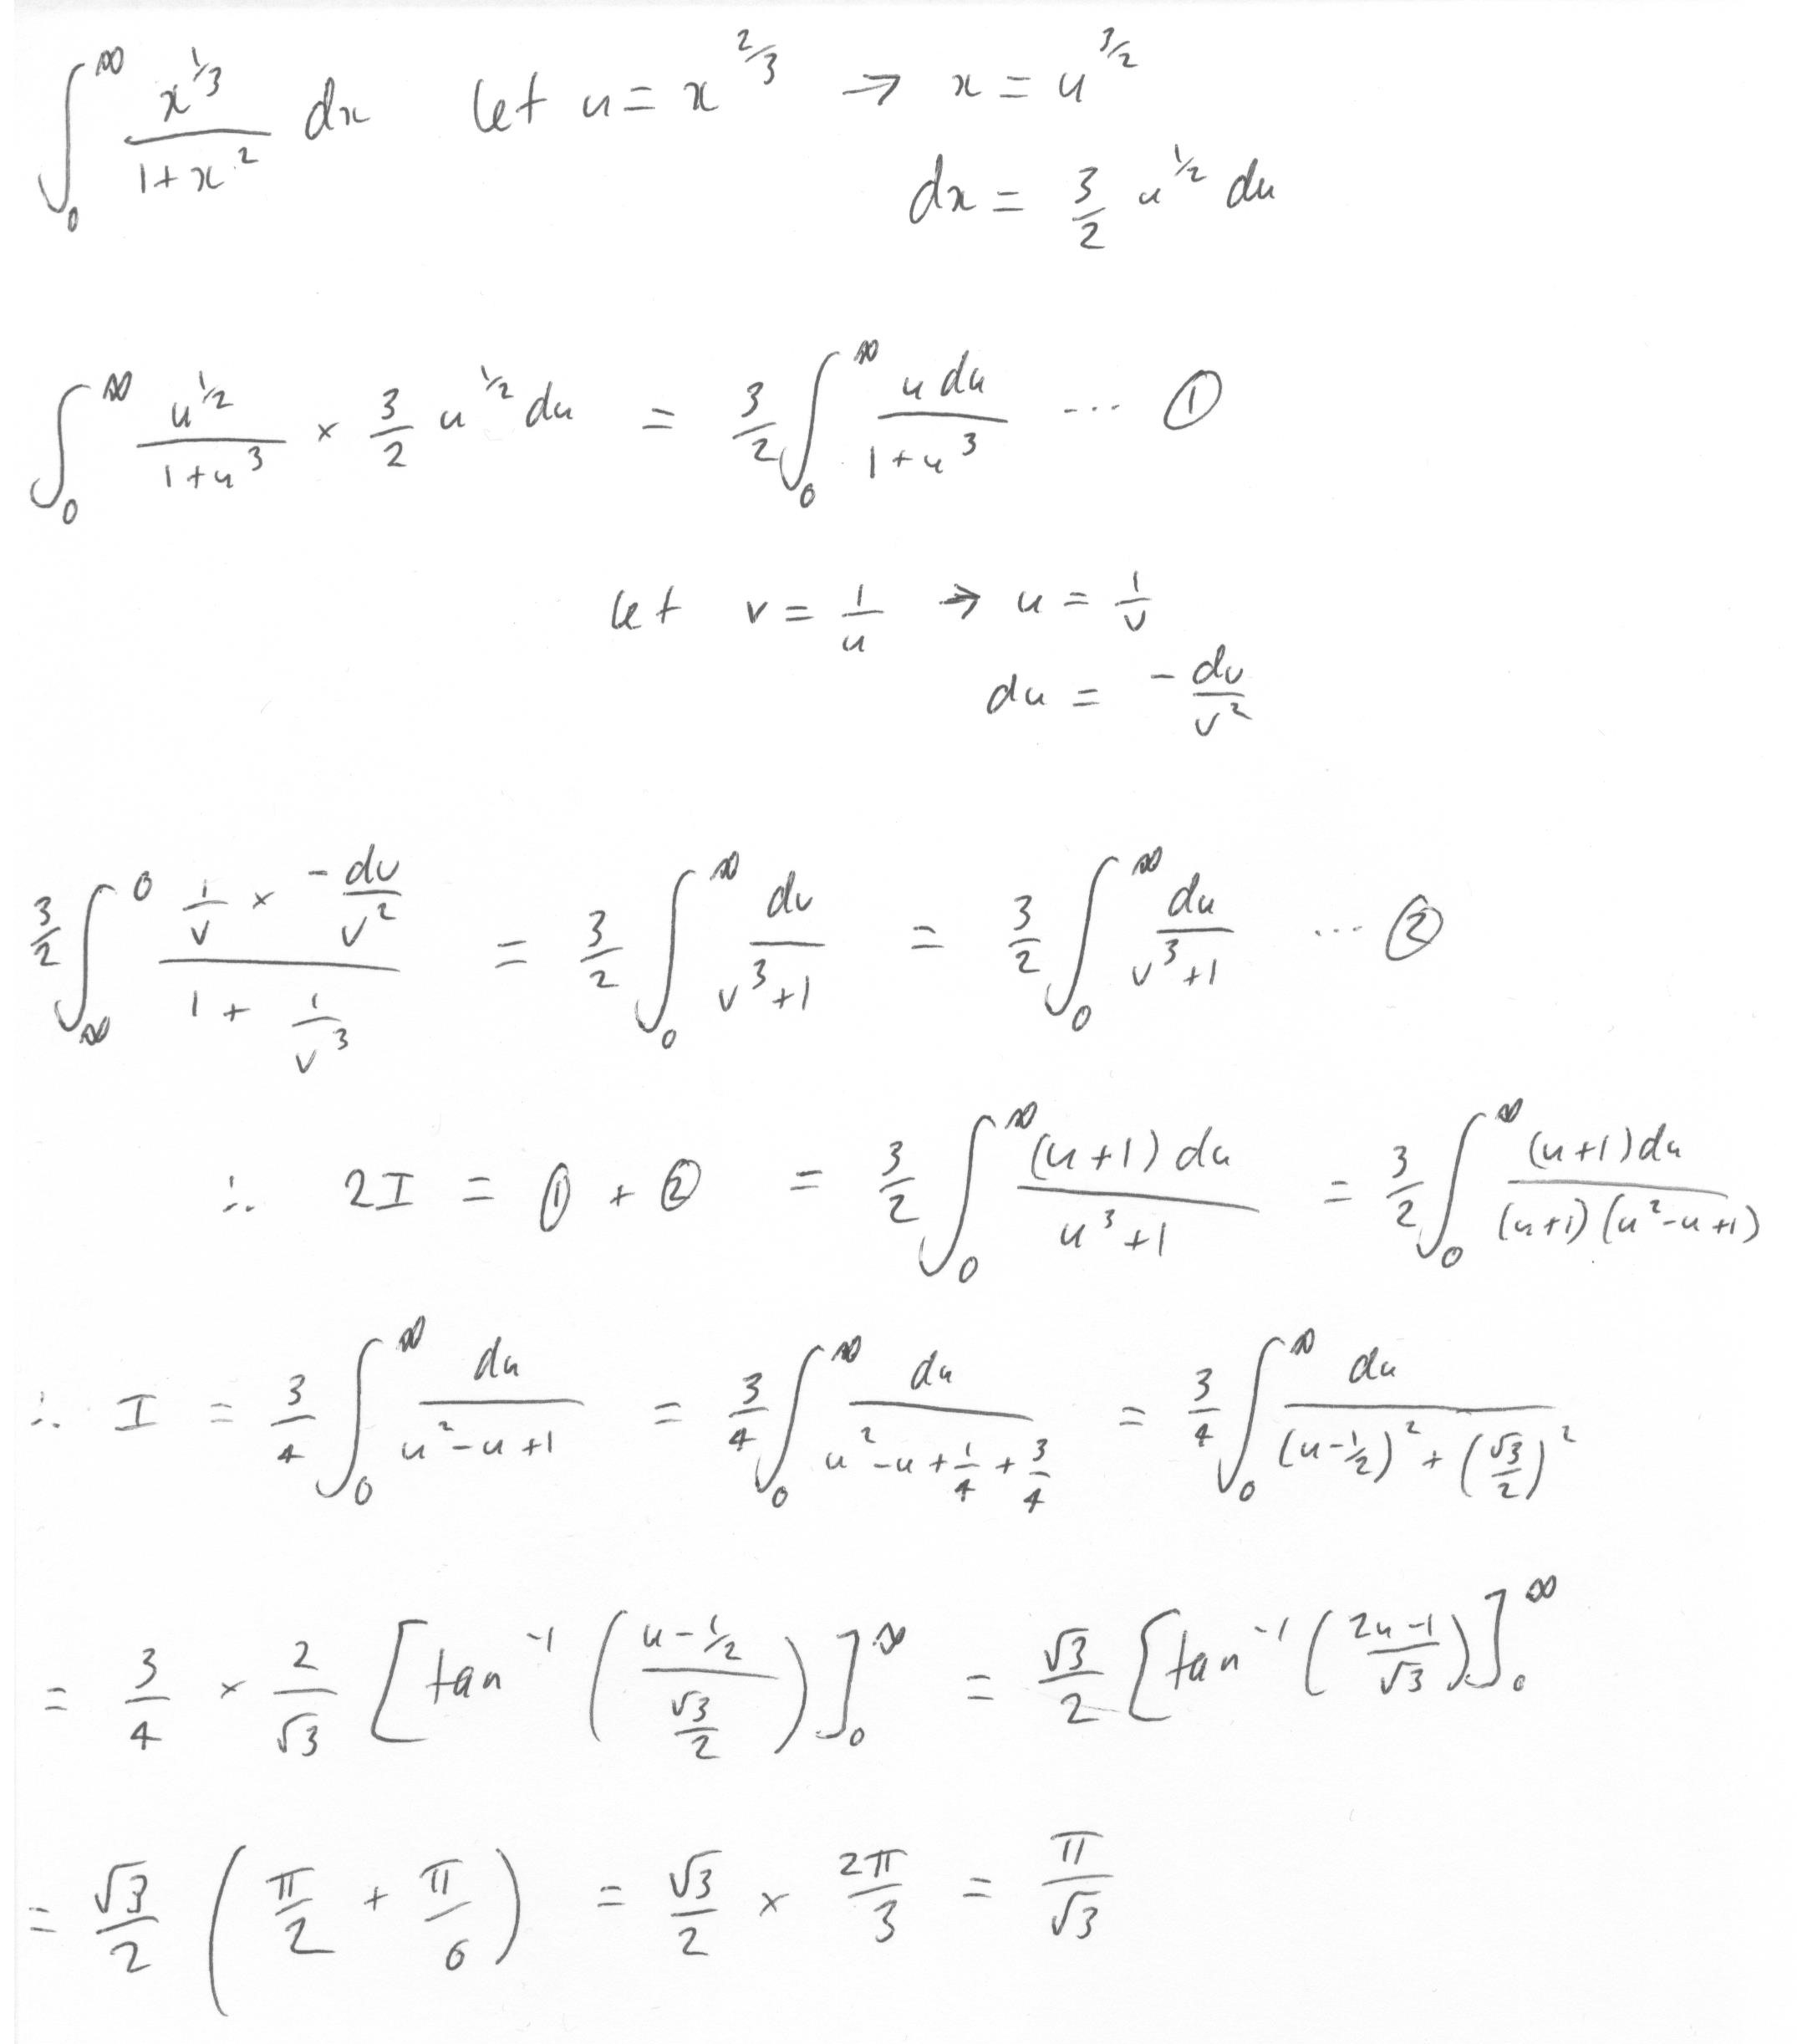 ∫₀^∞ x^{1/3}/(1+x²) dx let u = x^{2/3} → x = u^{3/2}
dx = 3/2 u^{1/2} du
∫₀^∞ u^{1/2}/(1+u³) × 3/2 u^{1/2} du = 3/2 ∫₀^∞ u du/(1+u³) ... ①
let v = 1/u → u = 1/v
du = -dv/v²
3/2 ∫_∞^0 (1/v × -dv/v²)/(1 + 1/v³) = 3/2 ∫₀^∞ dv/(v³+1) = 3/2 ∫₀^∞ du/(v³+1) ... ②
∴ 2I = ① + ② = 3/2 ∫₀^∞ (u+1) du/(u³+1) = 3/2 ∫₀^∞ (u+1) du/((u+1)(u²-u+1))
∴ I = 3/4 ∫₀^∞ du/(u²-u+1) = 3/4 ∫₀^∞ du/(u²-u+1/4+3/4) = 3/4 ∫₀^∞ du/((u-1/2)²+(√3/2)²)
= 3/4 × 2/√3 [tan⁻¹((u-1/2)/(√3/2))]₀^∞ = √3/2 [tan⁻¹((2u-1)/√3)]₀^∞
= √3/2 (π/2 + π/6) = √3/2 × 2π/3 = π/√3